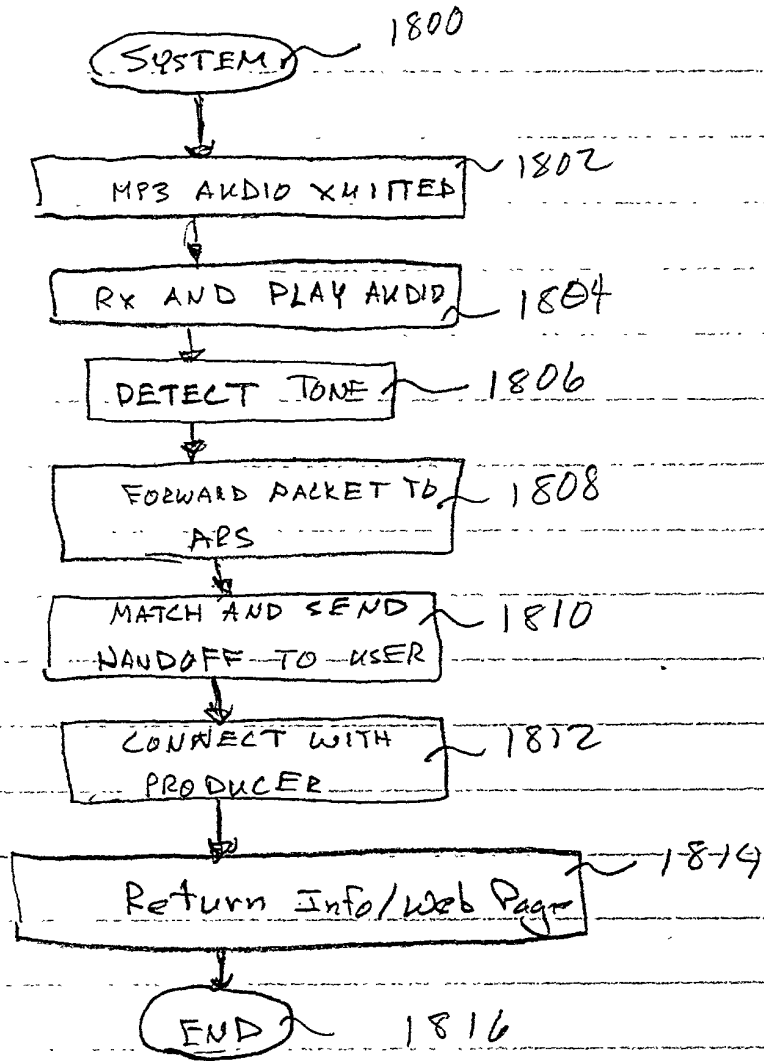 SYSTEM 1800
MP3 AUDIO XMITTED 1802
RX AND PLAY AUDIO 1804
DETECT TONE 1806
FORWARD PACKET TO 1808
ARS
MATCH AND SEND 1810
HANDOFF TO USER
CONNECT WITH 1812
PRODUCER
Return Info/Web Page 1814
END 1816